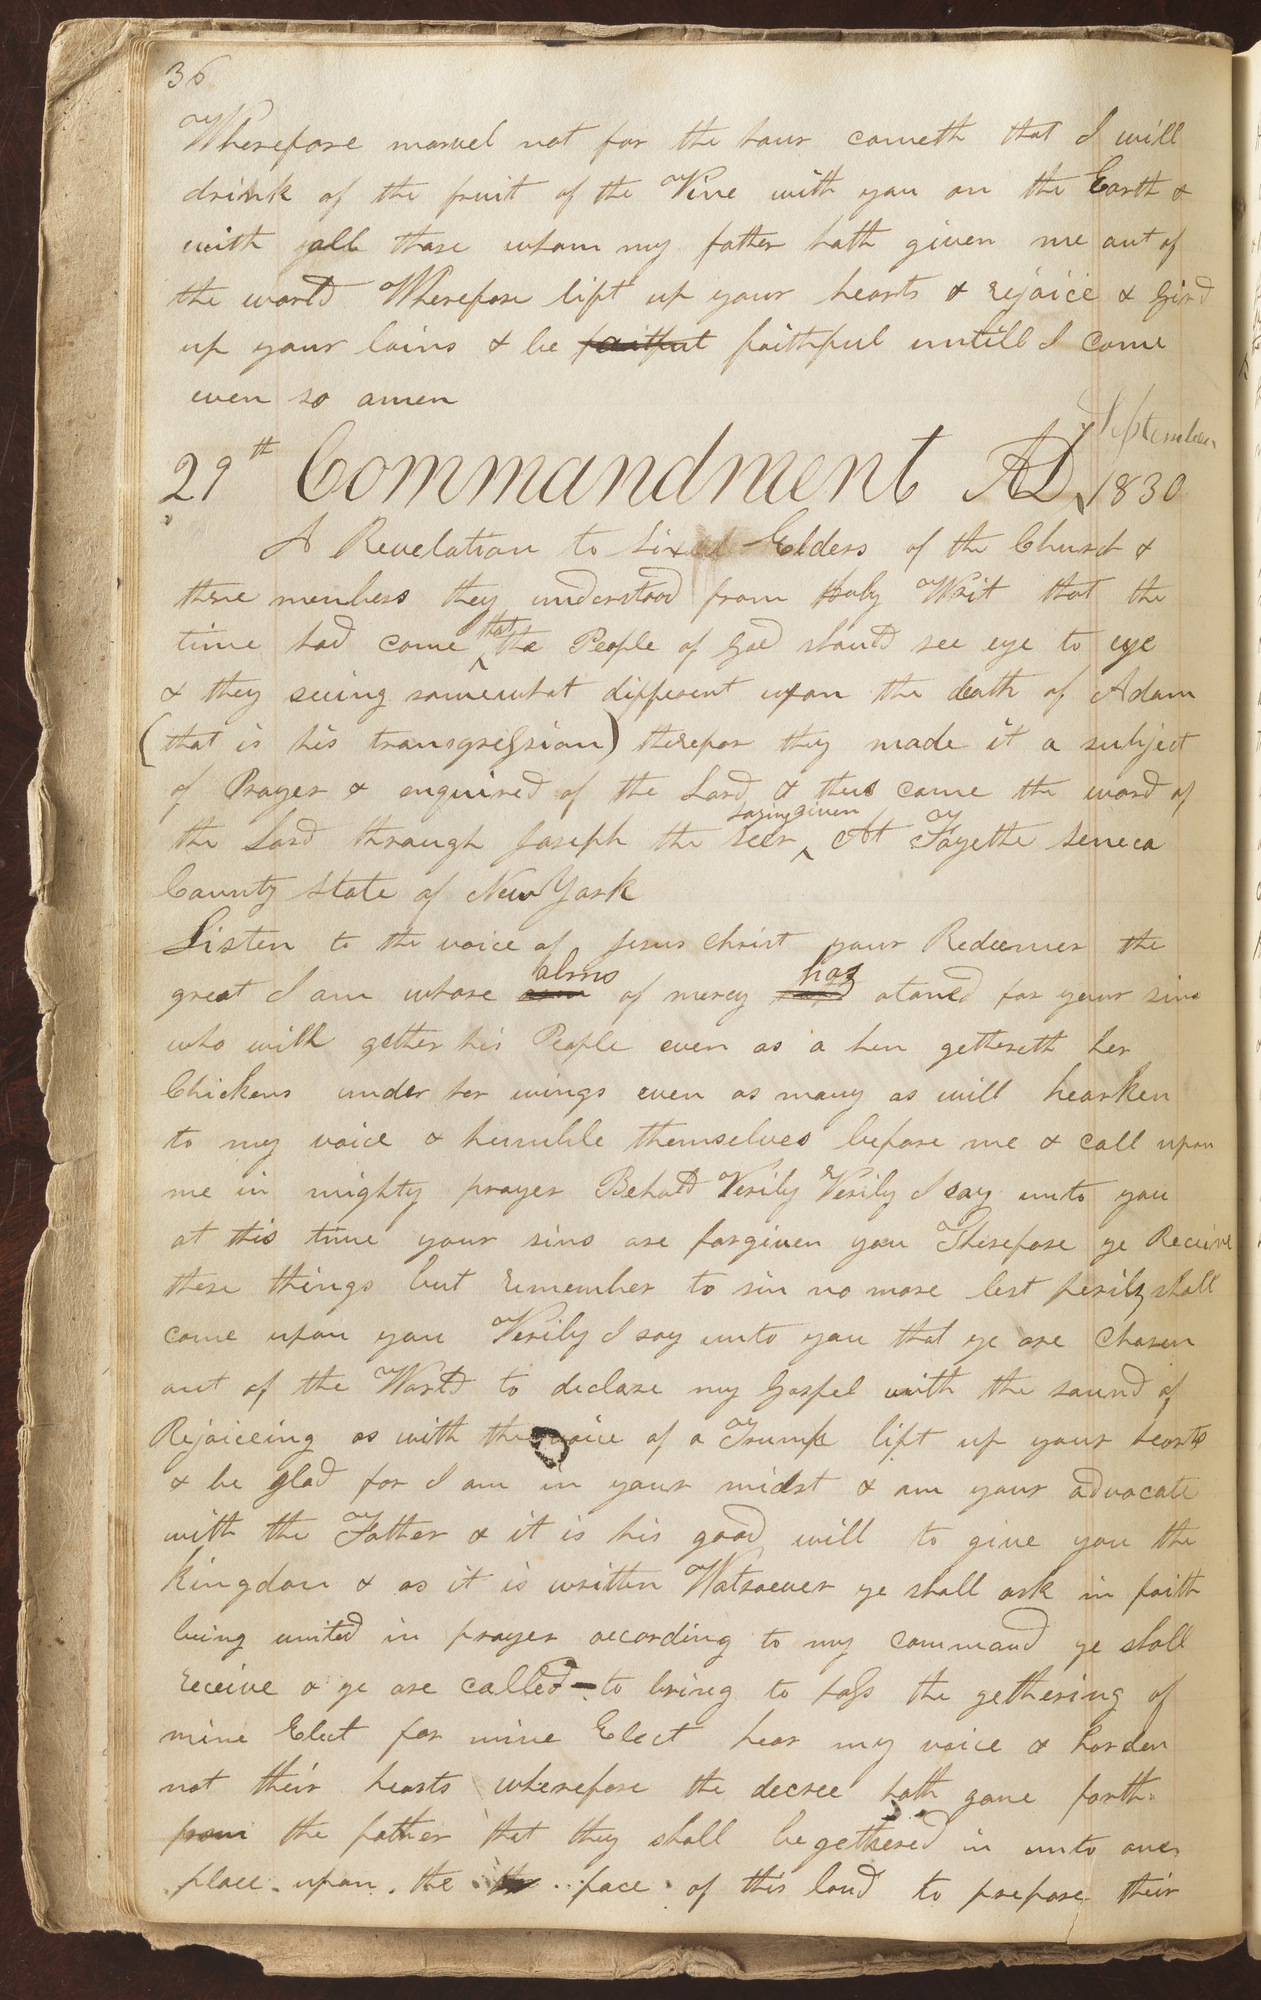 36
Wherefore marvel not for the hour cometh that I will
drink of the fruit of the Vine with you on the Earth &
with all those whom my father hath given me out of
the world Wherefore lift up your hearts & rejoice & Gird
up your loins & be faitful faithful untill I come
even so amen
September
29th Commandment AD 1830
A Revelation to six Elders of the Church &
three members they understood from Holy Writ that the
that
time had come the People of God should see eye to eye
& they seeing somewhat different upon the death of Adam
(that is his transgression) therefor they made it a subject
of Prayer & enquired of the Lord & thus came the word of
saying given
the Lord through Joseph the seer At Fayette Seneca
County State of New York
Listen to the voice of Jesus Christ your Redeemer the
alms has
great I am whose arm of mercy atoned for your sins
who will gether his People even as a hen gethereth her
Chickens under her wings even as many as will hearken
to my voice & humble themselves before me & call upon
me in mighty prayer Behold Verily Verily I say unto you
at this time your sins are forgiven you Therefore ye Receive
these things but remember to sin no more lest perils shall
come upon you Verily I say unto you that ye are Chosen
out of the World to declare my Gospel with the sound of
Rejoiceing as with the voice of a Trump lift up your hearts
& be glad for I am in your midst & am your advocate
with the Father & it is his good will to give you the
Kingdom & as it is written Watsoever ye shall ask in faith
being united in prayer according to my command ye shall
receive & ye are called to bring to pass the gethering of
mine Elect for mine Elect hear my voice & harden
not their hearts wherefore the decree hath gone forth
from the father that they shall be gethered in unto one
place upon the face of this land to prepare their